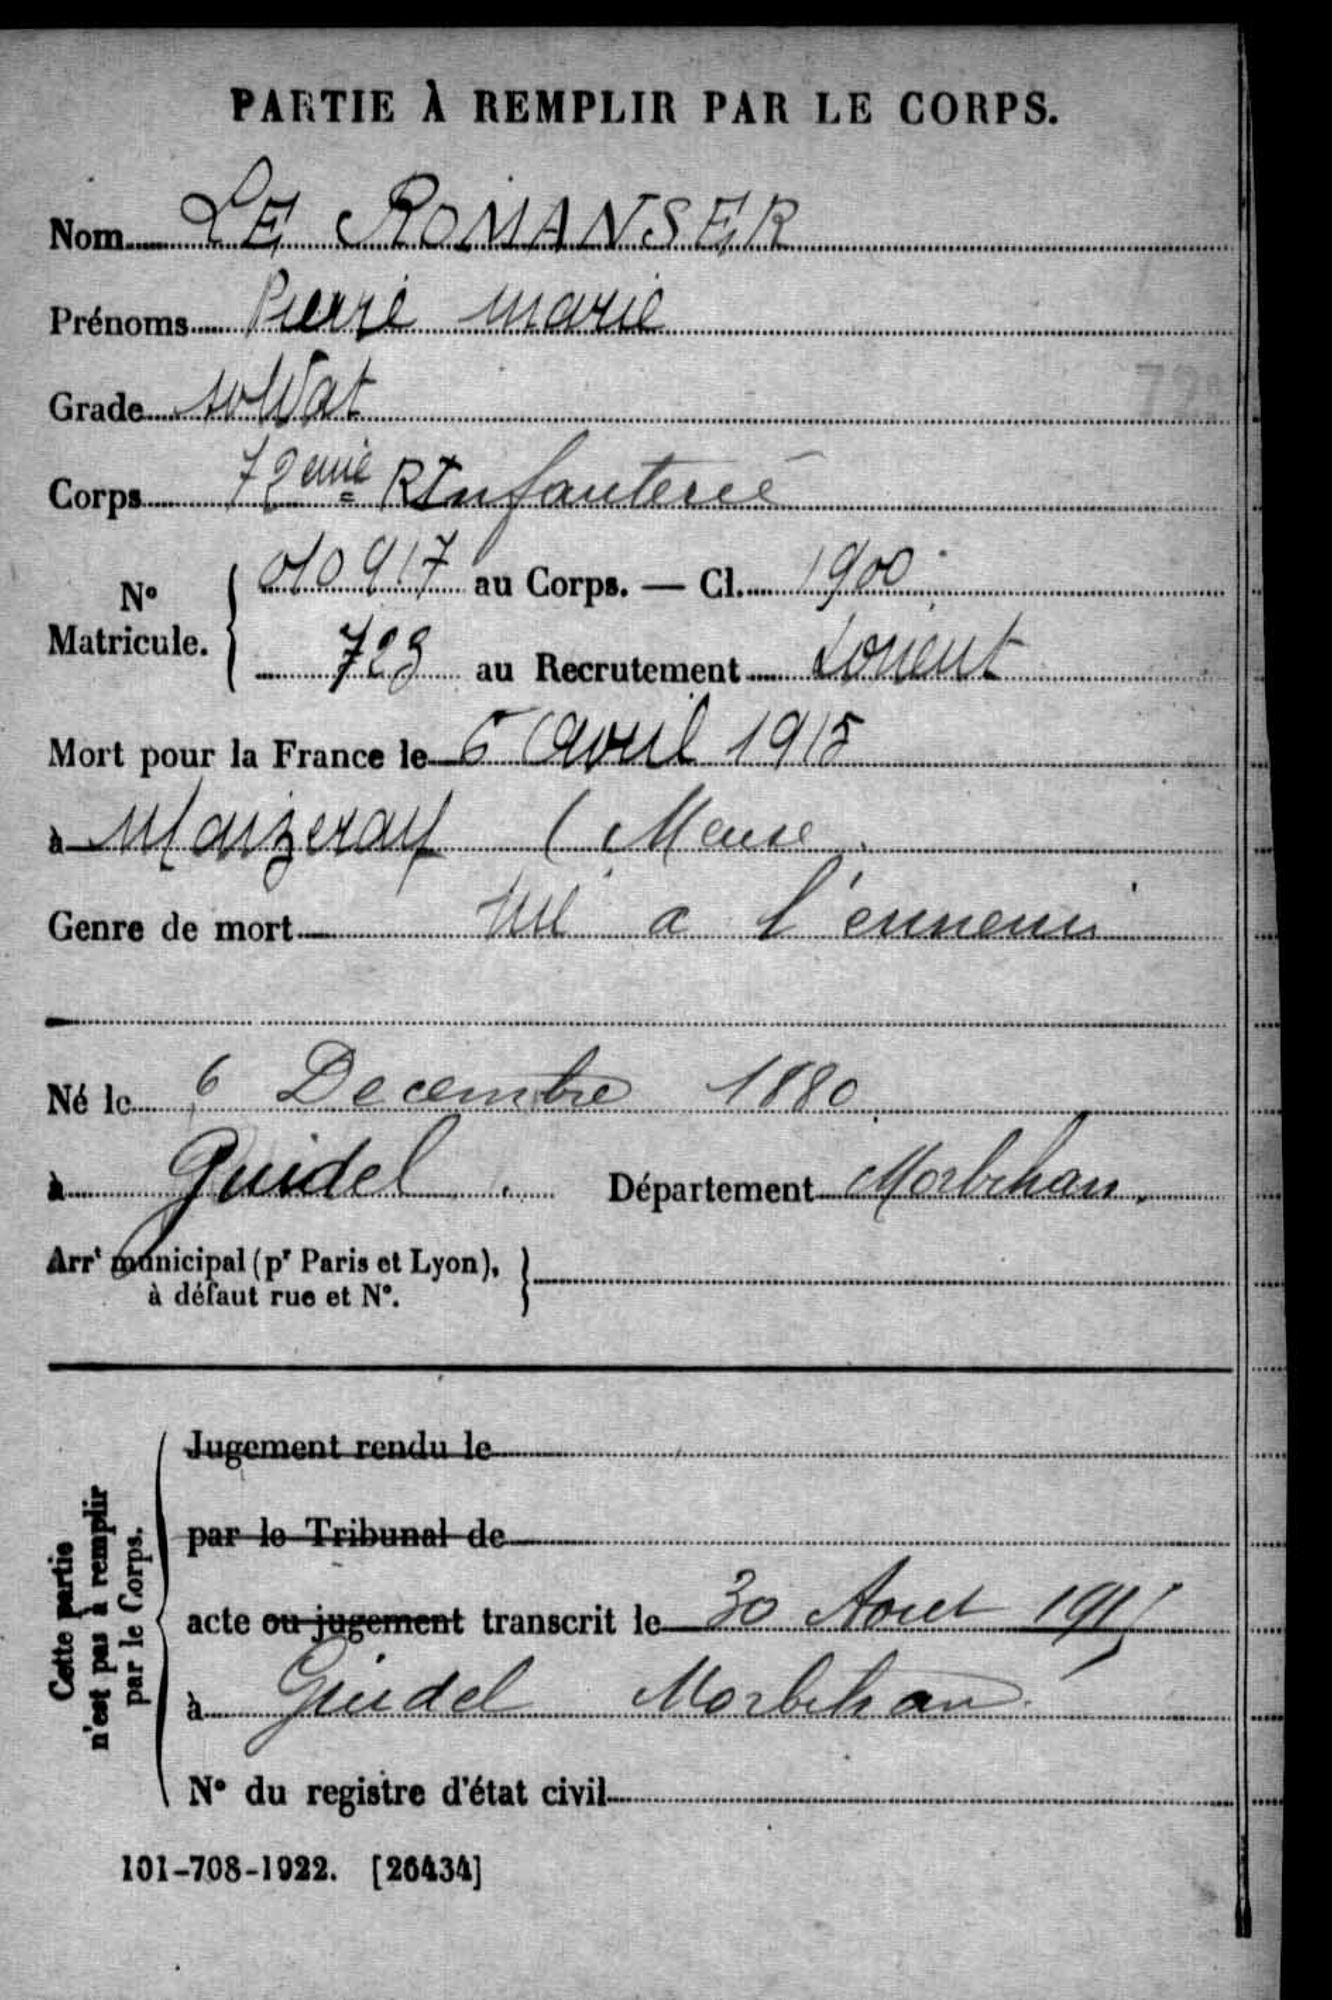 PARTIE À REMPLIR PAR LE CORPS.
Nom LE ROMANSER
Prénoms Pierre Marie
Grade soldat
Corps 72eme RInfanterie
N° Matricule. { 010917 au Corps. — Cl. 1900
723 au Recrutement Lorient
Mort pour la France le 6 Avril 1915
à Maizeray (Meuse
Genre de mort Tué a l'ennemi
Né le 6 Decembre 1880
à Guidel. Département Morbihan.
Arrt municipal (pr Paris et Lyon), }
à défaut rue et N°.
Cette partie n'est pas à remplir par le Corps.
Jugement rendu le
par le Tribunal de
acte ou jugement transcrit le 30 Aout 1915
à Guidel Morbihan.
N° du registre d'état civil
101-708-1922. [26434]